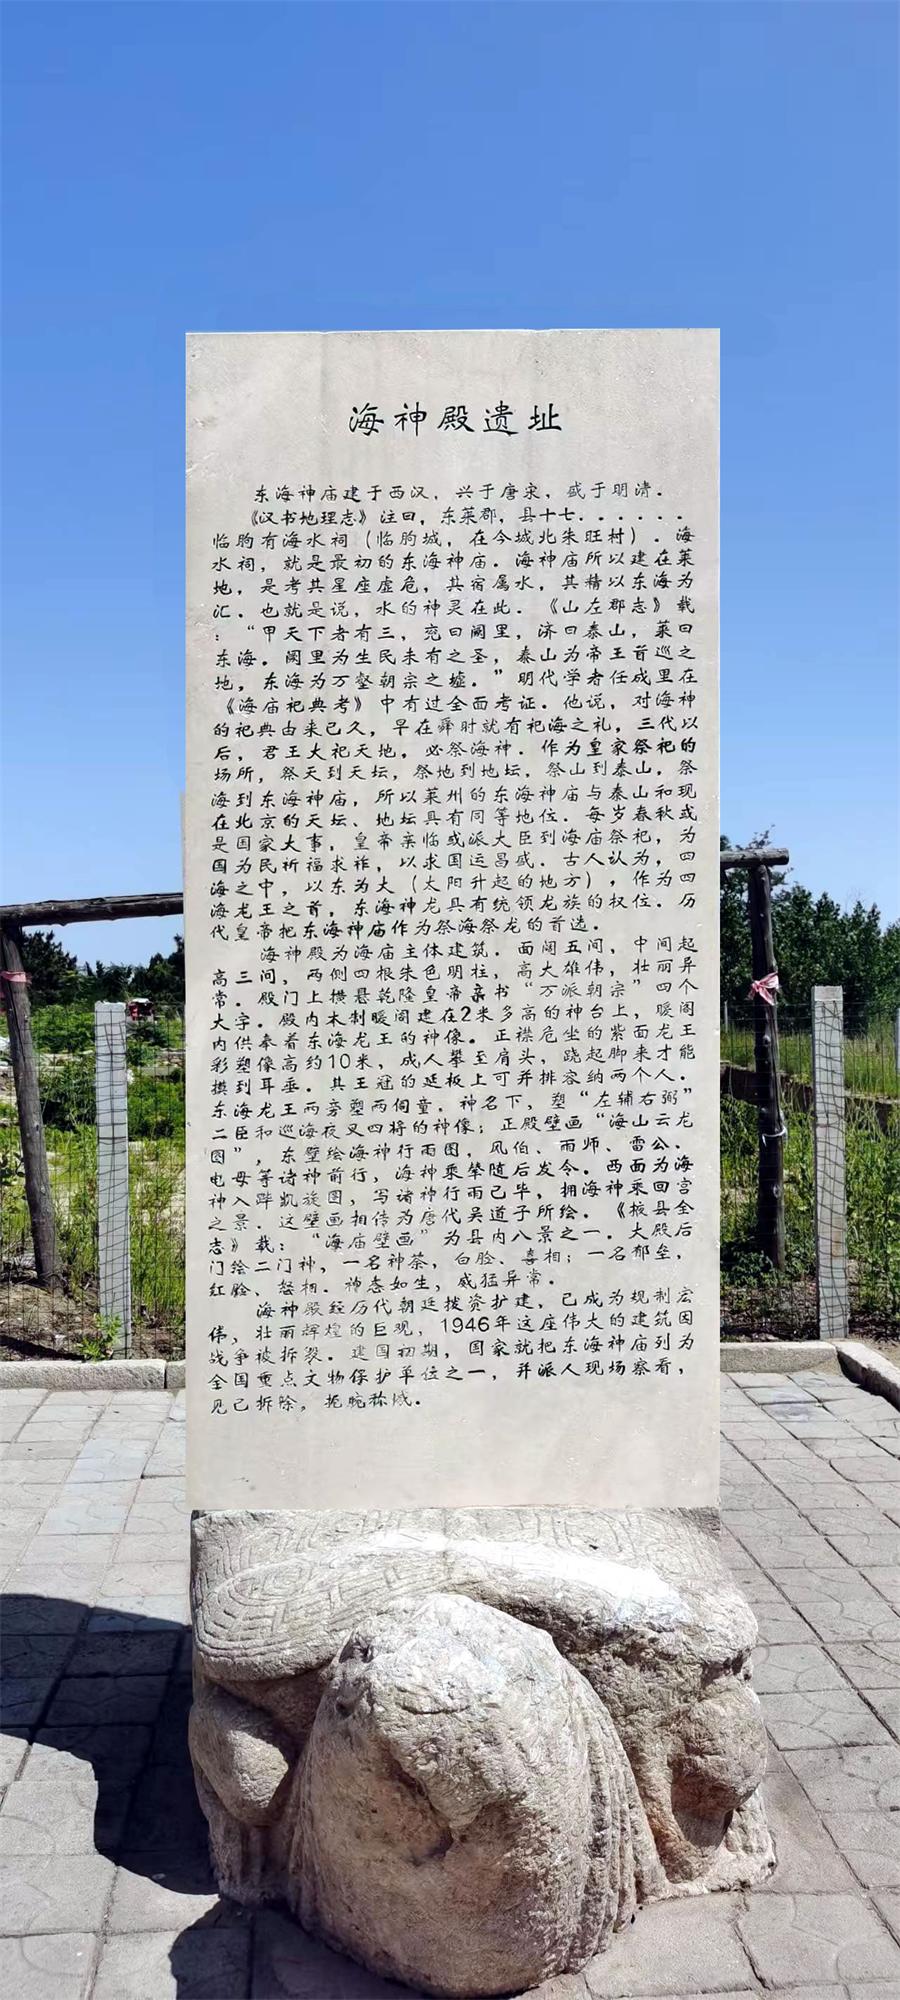 海神殿遗址
东海神庙建于西汉，兴于唐宋，盛于明清．
《汉书地理志》注曰，东莱郡，县十七．．．．．．
临朐有海水祠（临朐城，在今城北朱旺村）．海
水祠，就是最初的东海神庙．海神庙所以建在莱
地，是考其星座虚危，其宿属水，其精以东海为
汇．也就是说，水的神灵在此．《山左郡志》载
：“甲天下者有三，兖曰阙里，济曰泰山，莱曰
东海．阙里为生民未有之圣，泰山为帝王首巡之
地，东海为万壑朝宗之墟．”明代学者任成里在
《海庙祀典考》中有过全面考证．他说，对海神
的祀典由来已久，早在舜时就有祀海之礼，三代以
后，君王大祀天地，必祭海神．作为皇家祭祀的
场所，祭天到天坛，祭地到地坛，祭山到泰山，祭
海到东海神庙，所以莱州的东海神庙与泰山和现
在北京的天坛、地坛具有同等地位．每岁春秋或
是国家大事，皇帝亲临或派大臣到海庙祭祀，为
国为民祈福求祚，以求国运昌盛．古人认为，四
海之中，以东为大（太阳升起的地方），作为四
海龙王之首，东海神龙具有统领龙族的权位．历
代皇帝把东海神庙作为祭海祭龙的首选．
海神殿为海庙主体建筑．面阔五间，中间起
高三间，两侧四根朱色明柱，高大雄伟，壮丽异
常．殿门上横悬乾隆皇帝亲书“万派朝宗”四个
大字．殿内木制暖阁建在2米多高的神台上，暖阁
内供奉着东海龙王的神像．正襟危坐的紫面龙王
彩塑像高约10米，成人攀至肩头，跷起脚来才能
摸到耳垂．其王冠的延板上可并排容纳两个人．
东海龙王两旁塑两侗童．神名下，塑“左辅右弼”
二臣和巡海夜叉四将的神像；正殿壁画“海山云龙
图”，东壁绘海神行雨图，风伯、雨师、雷公、
电母等诸神前行，海神乘辇随后发令．西面为海
神入跸凯旋图，写诸神行雨已毕，拥海神乘回宫
之景．这壁画相传为唐代吴道子所绘．《掖县全
志》载：“海庙壁画”为县内八景之一．大殿后
门绘二门神，一名神荼，白脸、喜相；一名郁垒，
红脸、怒相．神态如生，威猛异常．
海神殿经历代朝廷拨资扩建，已成为规制宏
伟，壮丽辉煌的巨观，1946年这座伟大的建筑因
战争被拆毁．建国初期，国家就把东海神庙列为
全国重点文物保护单位之一，并派人现场察看，
见已拆除，扼腕称憾．